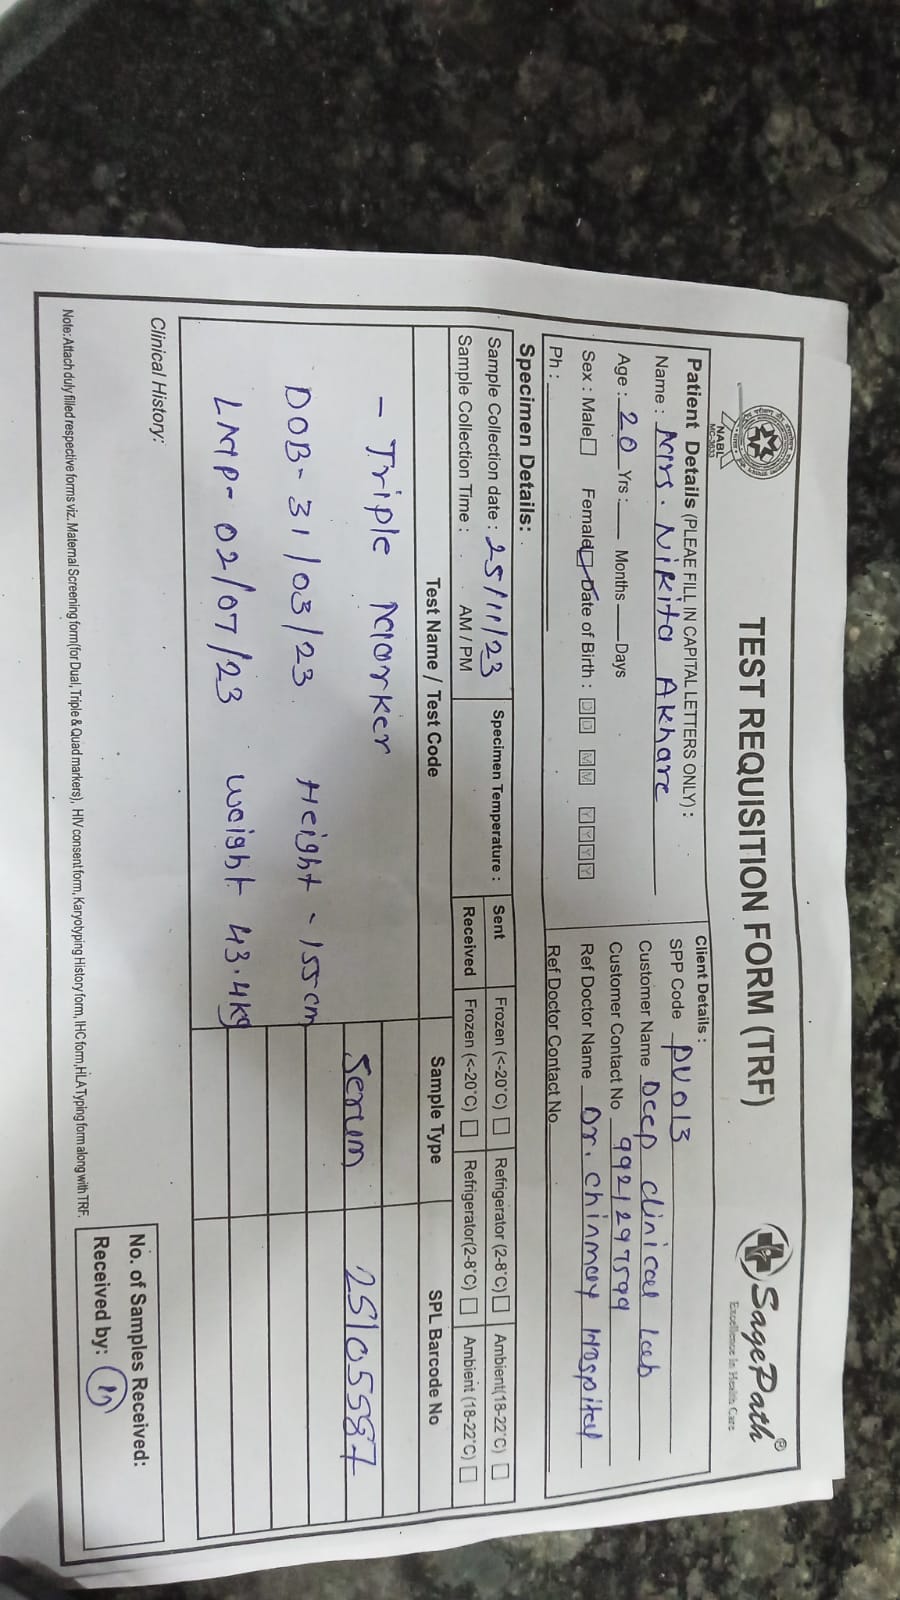 TEST REQUISITION FORM (TRF)
SagePath®
Excellence in Health Care
NABL
MC-3633
Patient Details (PLEAE FILL IN CAPITAL LETTERS ONLY) :
Name : Mrs. Nikita Akhare
Age : 20 Yrs : Months Days
Sex : Male Female Date of Birth : DD MM YYYY
Ph :
Client Details :
SPP Code PU013
Customer Name Deep clinical Lab
Customer Contact No 9921297599
Ref Doctor Name Dr. chinmay Hospital
Ref Doctor Contact No
Specimen Details:
Sample Collection date : 25/11/23
Sample Collection Time : AM / PM
Specimen Temperature :
Sent Frozen (<-20°C) Refrigerator (2-8°C) Ambient(18-22°C)
Received Frozen (<-20°C) Refrigerator(2-8°C) Ambient (18-22°C)
Test Name / Test Code Sample Type SPL Barcode No
- Triple Marker Serum 25105587
DOB- 31/03/23 Height - 155cm
LMP- 02/07/23 weight 43.4kg
Clinical History:
No. of Samples Received:
Received by:
Note:Attach duly filled respective forms viz. Maternal Screening form(for Dual, Triple & Quad markers), HIV consent form, Karyotyping History form, IHC form,HLA Typing form along with TRF.